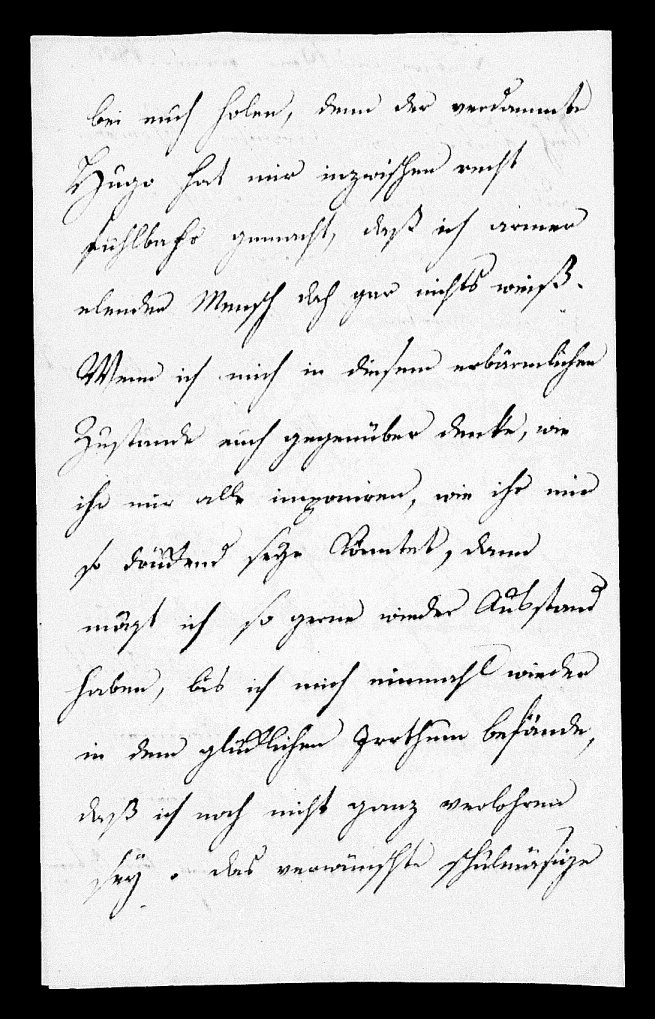 bei euch holen, denn der verdammte
Hugo hat mir inzwischen recht
fühlbahr gemacht, daß ich armer
elender Mensch doch gar nichts weiß.
Wenn ich mich in diesem erbärmlichen
Zustande euch gegenüber denke, wie
ihr mir alle imponiren, wie ihr mir
so sehr könntet, dann
mögt ich so gerne wieder Ausstand
haben, bis ich mich einmahl wieder
in dem glücklichen Irrthum befände,
daß ich noch nicht ganz verlohren
sey. das verwünschte schulmäsige